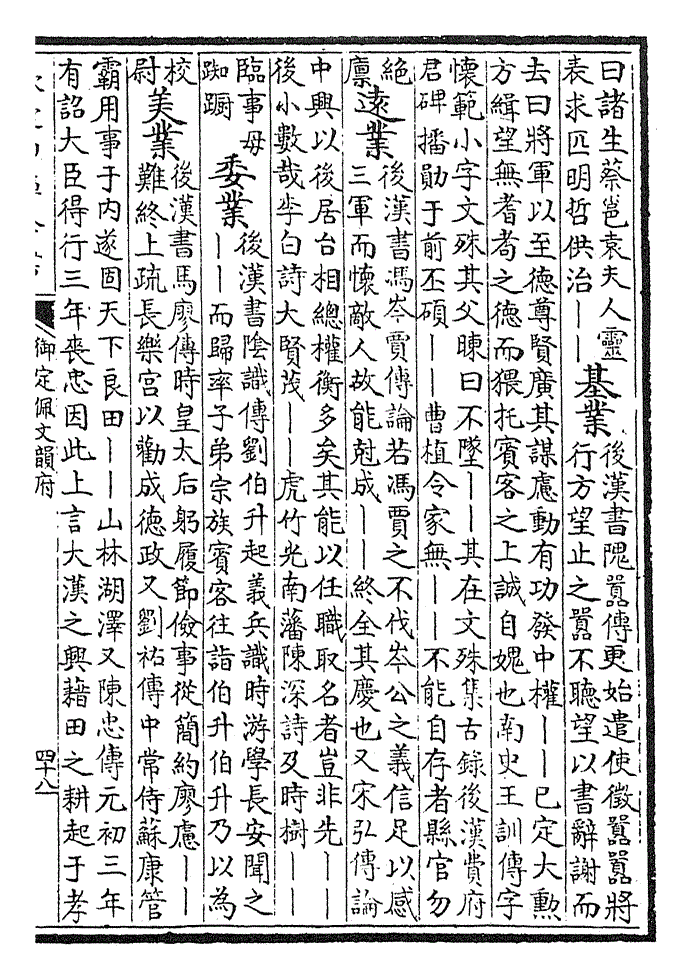 曰諸生蔡邕袁夫人靈
表求匹明哲供治丨丨
基業
後漢書隗囂傳更始遣使徵囂囂將
行方望止之囂不聽望以書辭謝而
去曰將軍以至德尊賢廣其謀慮動有功發中權丨丨已定大勲
方緝望無耆耉之德而猥托賓客之上誠自媿也南史王訓傳字
懷範小字文殊其父暕曰不墜丨丨其在文殊集古録後漢費府
君碑播勛于前丕碩丨丨曹植令家無丨丨不能自存者縣官勿
絶
廪
遠業
後漢書馮岑賈傳論若馮賈之不伐岑公之義信足以感
三軍而懷敵人故能尅成丨丨終全其慶也又宋弘傳論
中興以後居台相總權衡多矣其能以任職取名者豈非先丨丨
後小數哉李白詩大賢茂丨丨虎竹光南藩陳深詩及時樹丨丨
臨事毋
踟躕
委業
後漢書陰識傳劉伯升起義兵識時游學長安聞之
丨丨而歸率子弟宗族賓客往詣伯升伯升乃以為
校
尉
美業
後漢書馬廖傳時皇太后躬履節儉事從簡約廖慮丨丨
難終上疏長樂宫以勸成德政又劉祐傳中常侍蘇康管
霸用事于内遂固天下良田丨丨山林湖澤又陳忠傳元初三年
有詔大臣得行三年喪忠因此上言大漢之興藉田之耕起于孝
御定佩文韻府
四十八